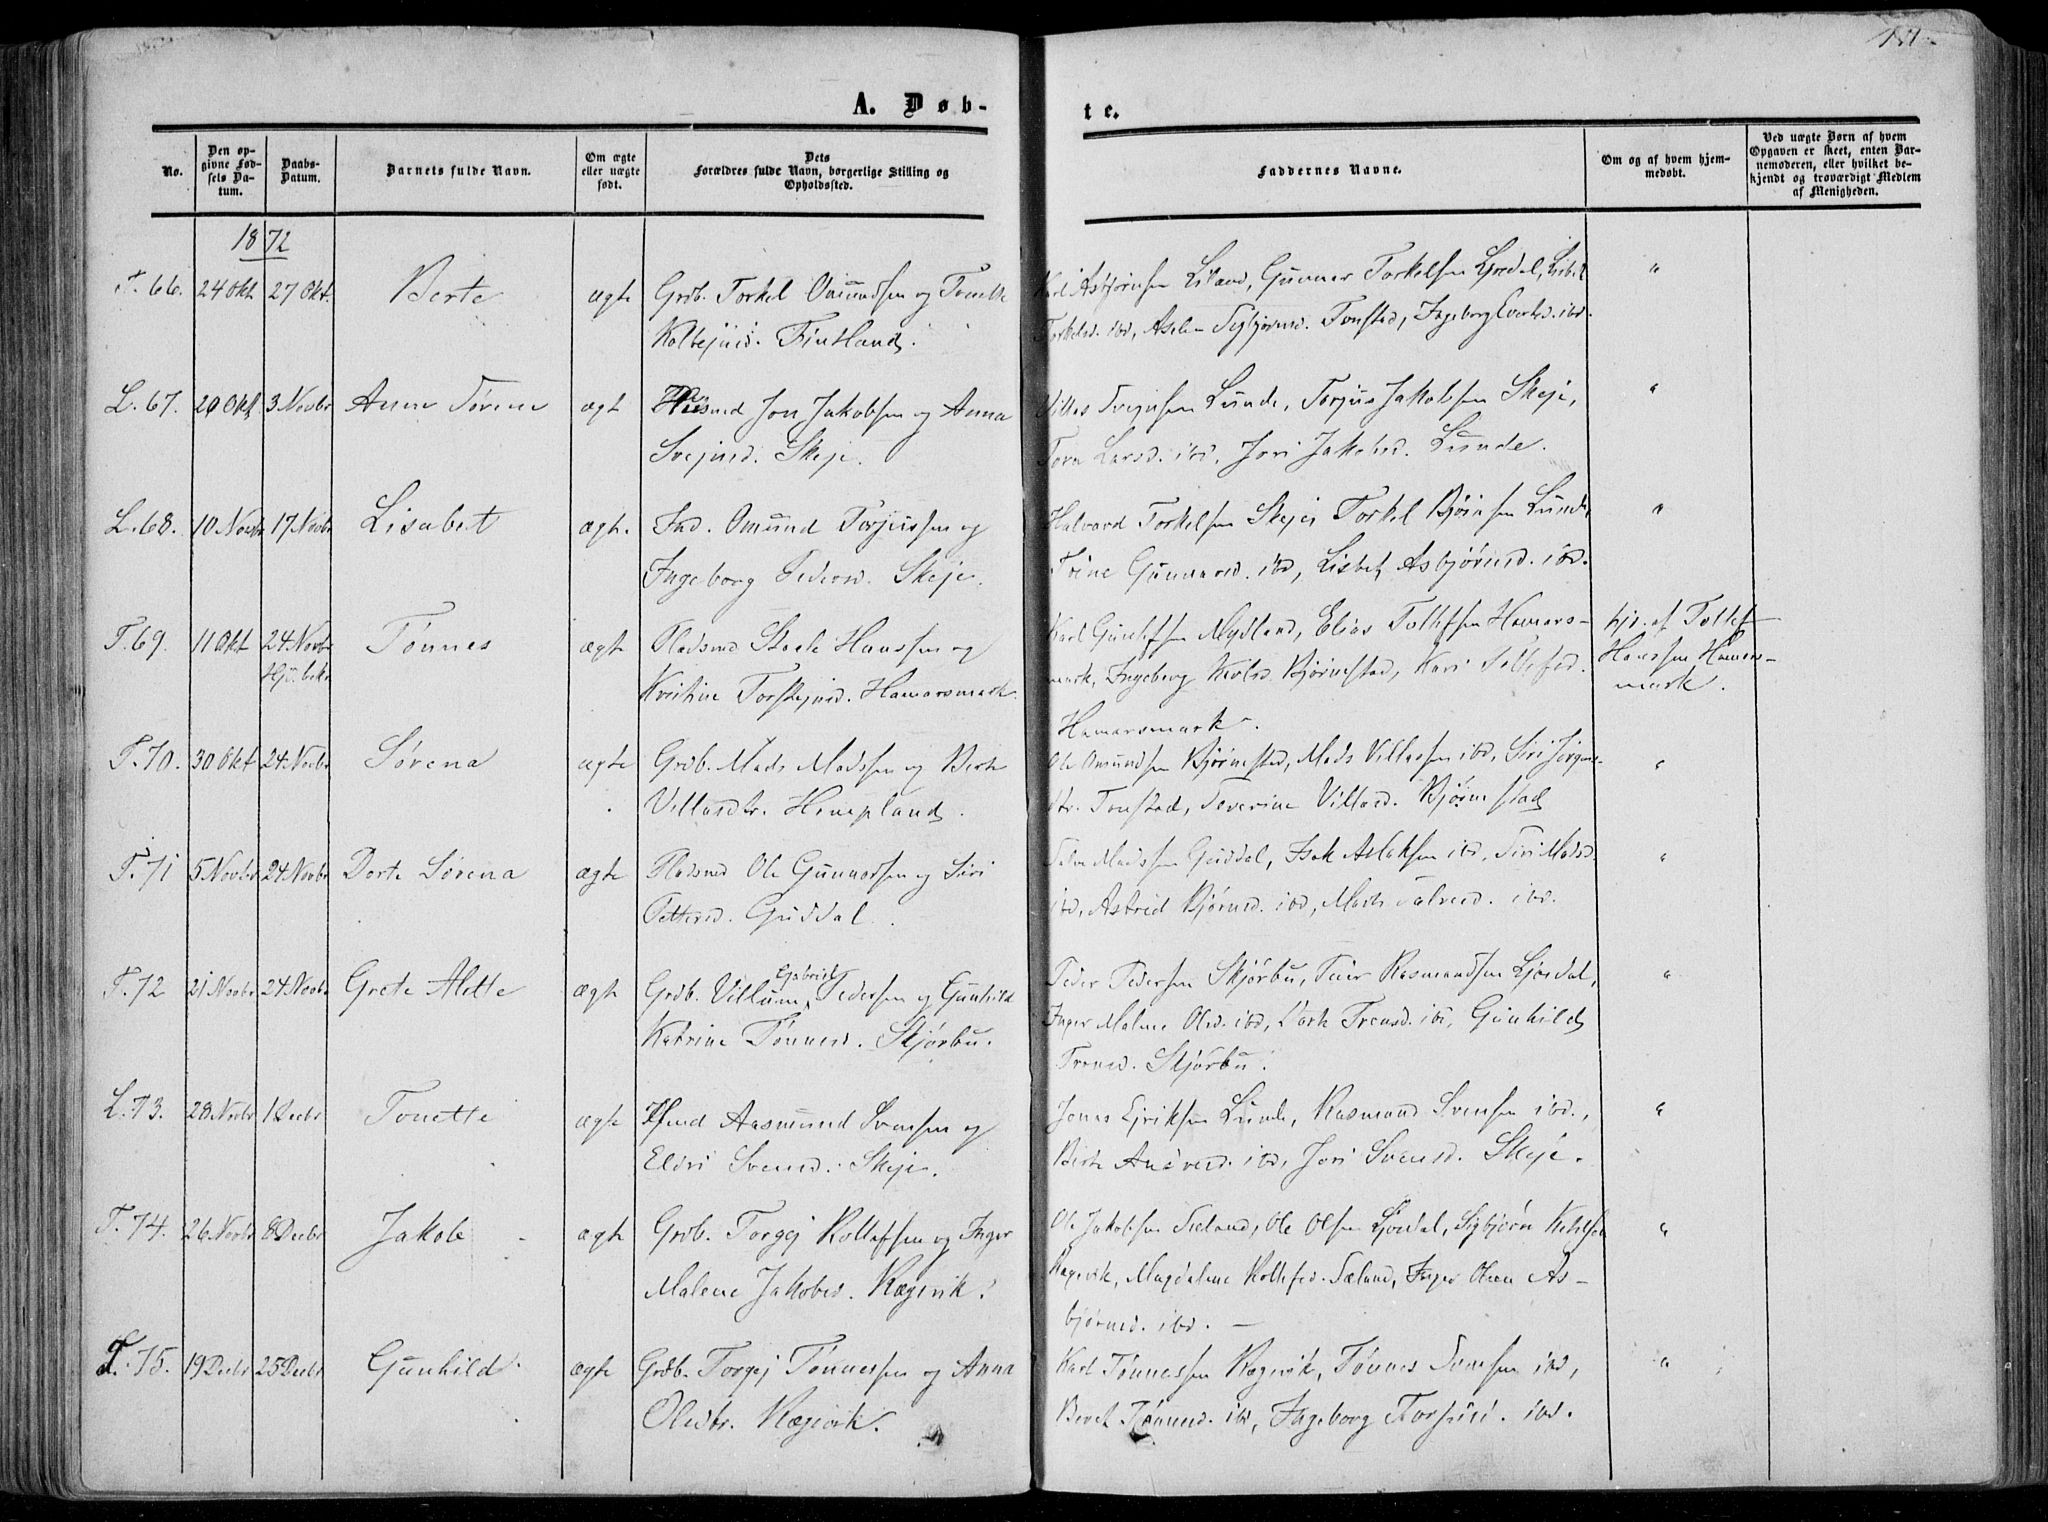 A. Døb-
te.
No.
Den op-
givne Fød-
sels Da-
tum.
Daabs-
Datum.
Barnets fulde Navn.
Om ægte
eller uægte
født.
Dets
Forældres fulde Navn, borgerlige Stilling og
Opholdssted.
Faddernes Navne.
Om og af hvem hjem-
medøbt.
Ved uægte Børn af hvem
Opgaven er skeet, enten Bar-
nemoderen, eller hvilket be-
kjendt og troværdigt Medlem
af Menigheden.
1872
T. 66. 24 Okt 27 Okt. Berte ægte Grdb. Torkel Omundsen og Tonette
Kolbejnsd. Fintland.
Karl Asbjørnsen Liland, Gunnar Torkelsen Lisbet "
Torkelsd. ibd, Sigbjørnsd. Tonstad, Ingeborg ibd.
L. 67. 20 Okt 3 Novbr Anne Sørene ægte Jon Jakobsen og Anna
Svejnsd. Skeje.
Villas Svejnsen Lunde, Torjus Jakobsen Skeje, "
Tora Larsd. ibd, Jori Jakobsd. Lunde.
L. 68. 10 Novbr 17 Novbr Lisabet ægte. Ind. Omund Torjussen og
Ingeborg Pedersd. Skeje.
Halvard Torkelsen Skeje, Torkel Bjørnsen Lunde, "
Trine Gunnarsd. ibd, Lisbet Asbjørnsd. ibd.
T. 69. 11 Okt 24 Novbr Tønnes ægte Pladsmd Hanssen og
Kristine Torstejnsd. Hamarsmark
Karl Mydland, Elias Tollefsen Hamars- hjd. af Tollef
mark, Ingeborg Bjørnestad, Kari Tollefsd. Hanssen Hamars-
mark.
Hamarsmark.
T. 70. 30 Okt 24. Novbr Sørena ægte Grdb. Mads Madssen og Berte
Villasdtr. Hompland.
Ole Omundsen Bjørnestad, Mads Villassen ibd, Siri "
dtr. Tonstad, Severine Villasd. Bjørnestad
T. 71 5 Novbr 24 Novbr Dorte Sørena ægte Pladsmd Ole Gunnarsen og Siri
Pettersd. Guddal.
Madssen Guddal, Isak Aslaksen ibd, Siri Madsd. "
ibd, Astrid Bjørnsd. ibd, Mads ibd.
T. 72 21 Novbr 24 Novbr Grete Alette ægte Grdb. Villum Gabriel Pedersen og Gunhild
Katrine Tønnesd. Skjørbu.
Peder Pedersen Skjørbu, Peder Rasmundsen "
Inger Malene Olsd. ibd, Gunhild
Skjørbu.
L. 73. 28 Novbr 1 Decbr Tonette ægte Aasmund Svensen og
Eldri Svensd. Skeje.
Jonas Ejriksen Lunde, Rasmund Svensen ibd., "
Berte ibd, Jori Svensd. Skeje.
T. 74. 26 Novbr 8 Decbr Jakob ægte Grdb. Torgej Rollefsen og Inger
Malene Jakobsd. Rægevik.
Ole Jakobsen Ole Olsen Sigbjørn "
Rægevik, Magdalene Rollefsd. As-
bjørnsd. ibd.
T. 75. 19 Decbr 25 Decbr Gunhild ægte Grdb. Torgej Tønnessen og Anna
Olsdtr. Rægevik.
Karl Tønnessen Rægevik, Tønnes Svensen ibd, "
Beret Tønnesd. ibd, Ingeborg ibd.